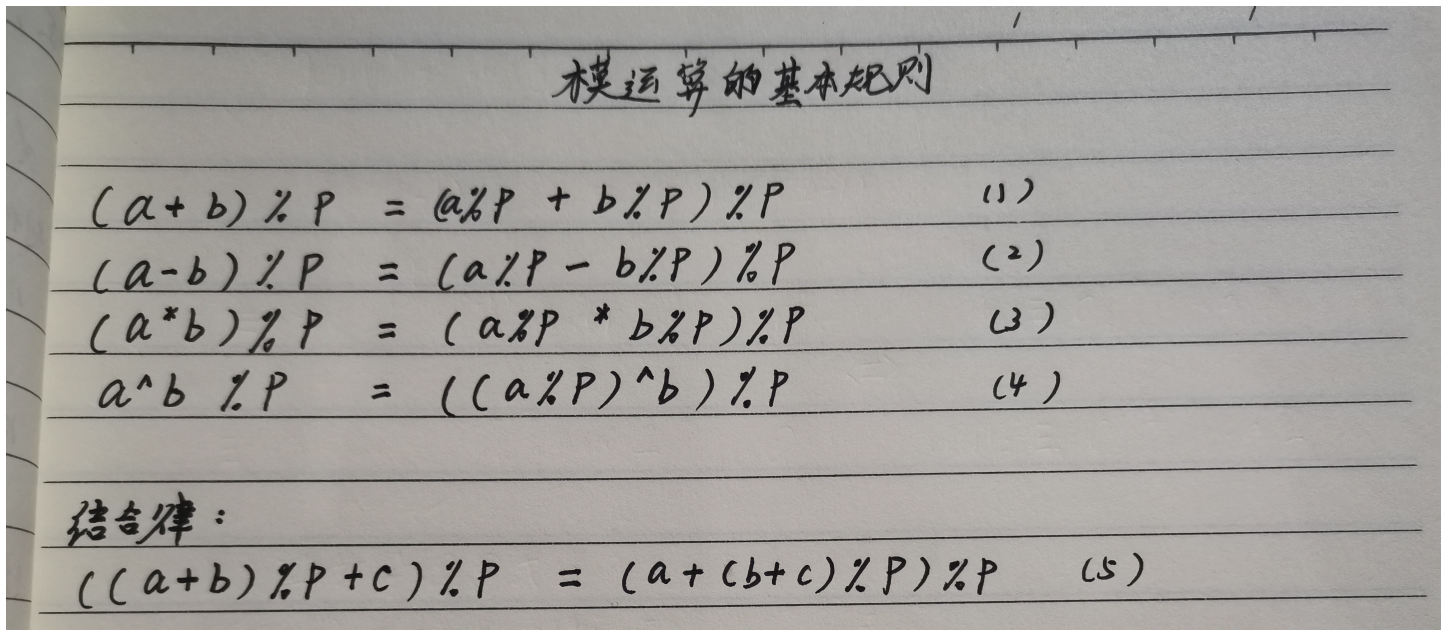 模运算的基本规则
(a+b)%P = (a%P + b%P)%P (1)
(a-b)%P = (a%P - b%P)%P (2)
(a*b)%P = (a%P * b%P)%P (3)
a^b %P = ((a%P)^b)%P (4)
结合律:
((a+b)%P+c)%P = (a+(b+c)%P)%P (5)